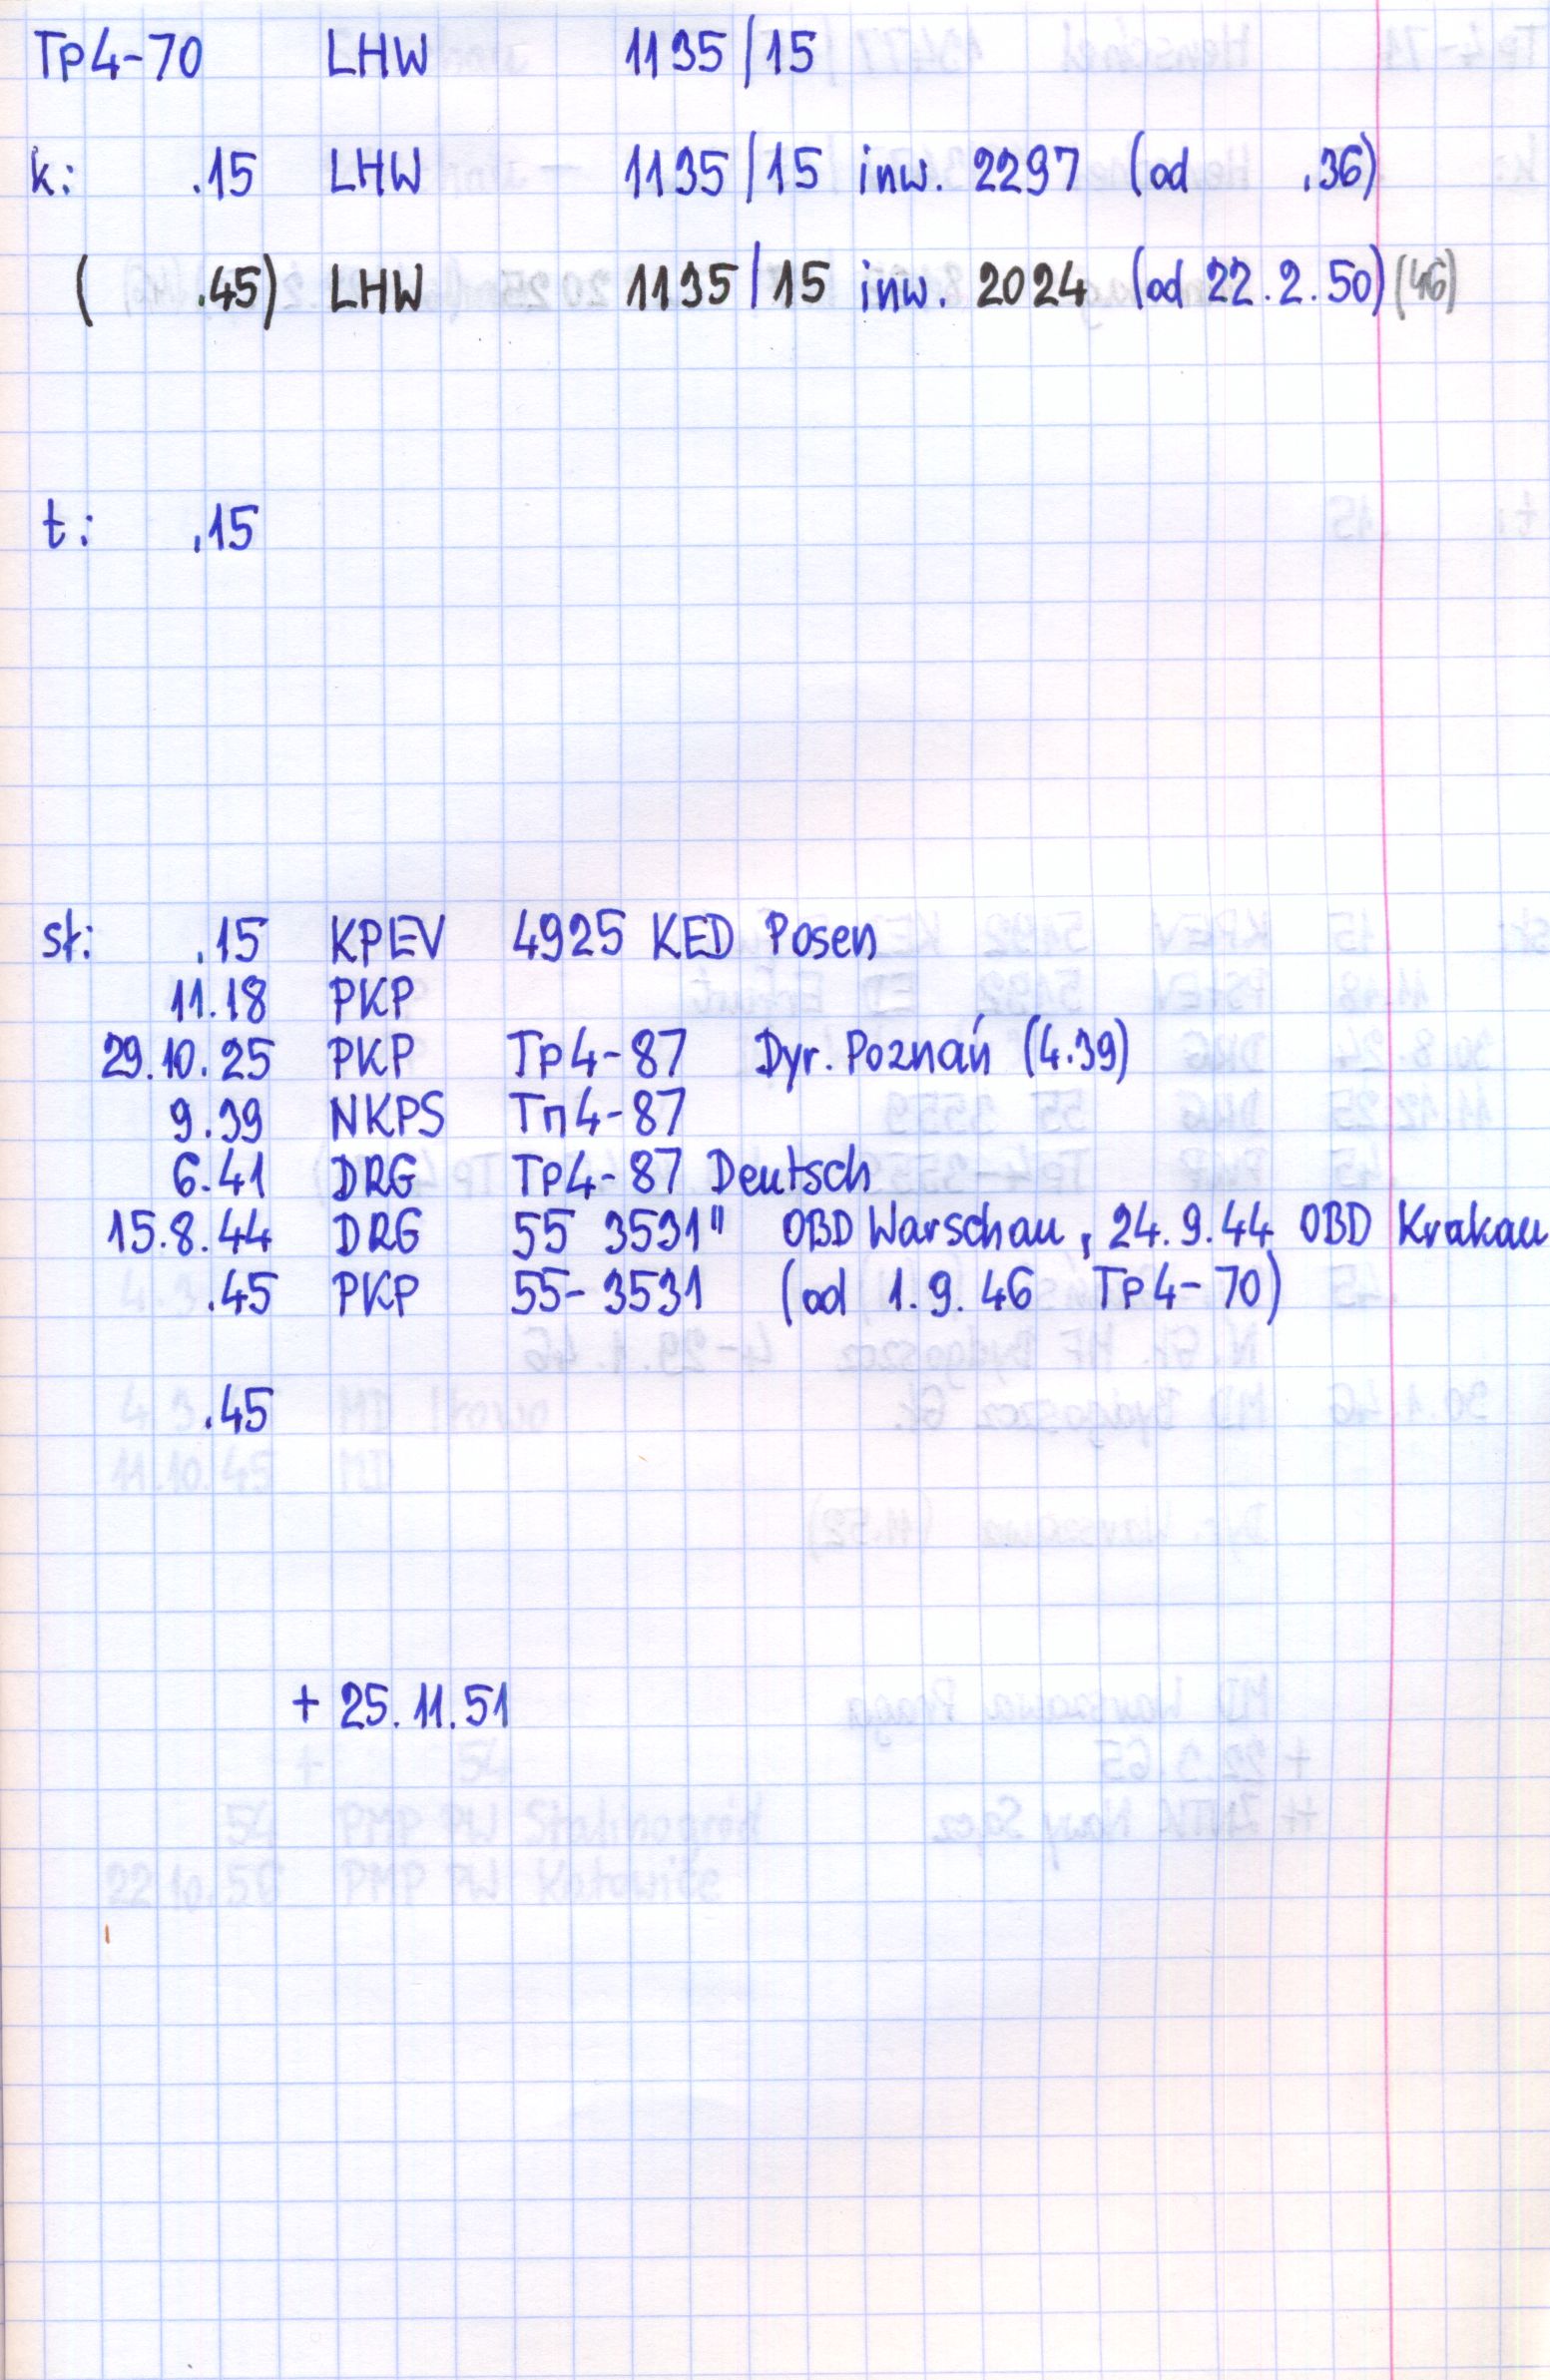 Tp4-70 LHW 1135/15
k: .15 LHW 1135/15 inw. 2297 (od .36)
( .45) LHW 1135/15 inw. 2024 (od 22.2.50) (46)
t: .15
st: .15 KPEV 4925 KED Posen
11.18 PKP
29.10.25 PKP Tp4-87 Dyr. Poznań (4.39)
9.39 NKPS Тп4-87
6.41 DRG Tp4-87 Deutsch
15.8.44 DRG 55 3531" OBD Warschau, 24.9.44 OBD Krakau
.45 PKP 55-3531 (od 1.9.46 Tp4-70)
.45
+ 25.11.51